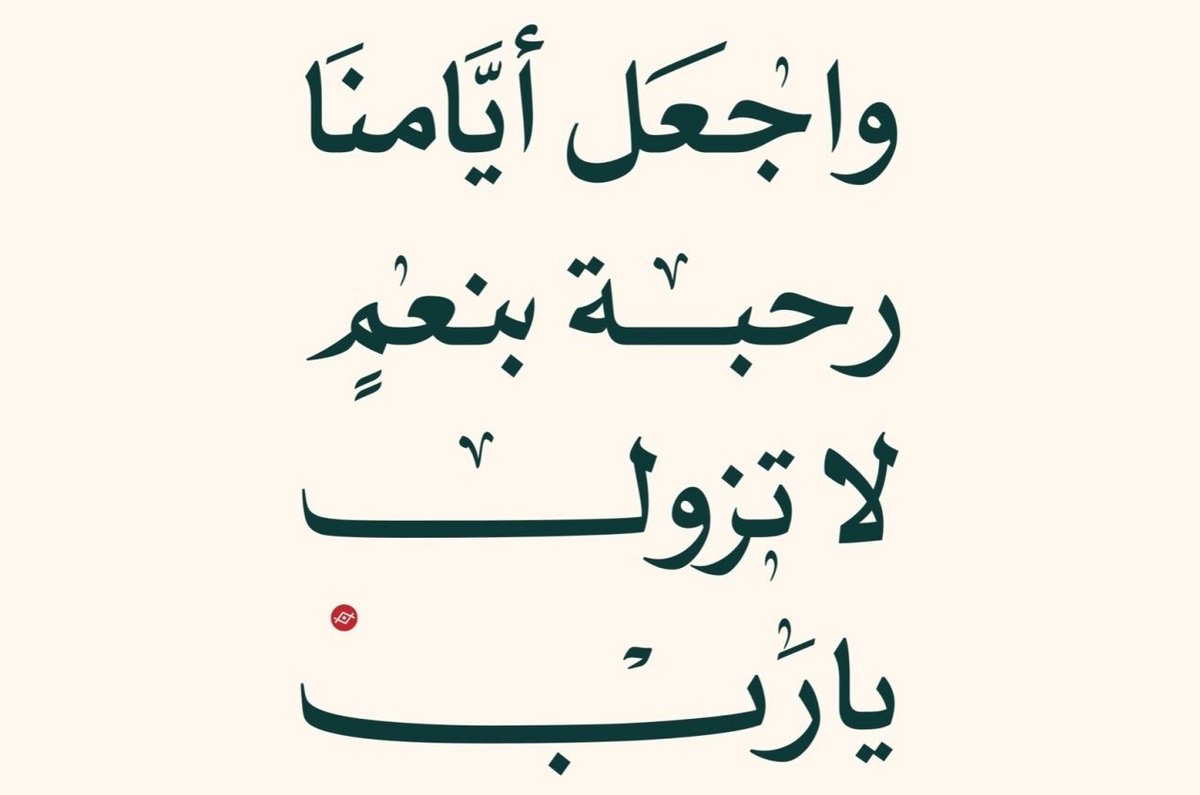 واجعَل أيَّامنَا
رحبة بنعمٍ
لا تزول
يارَب